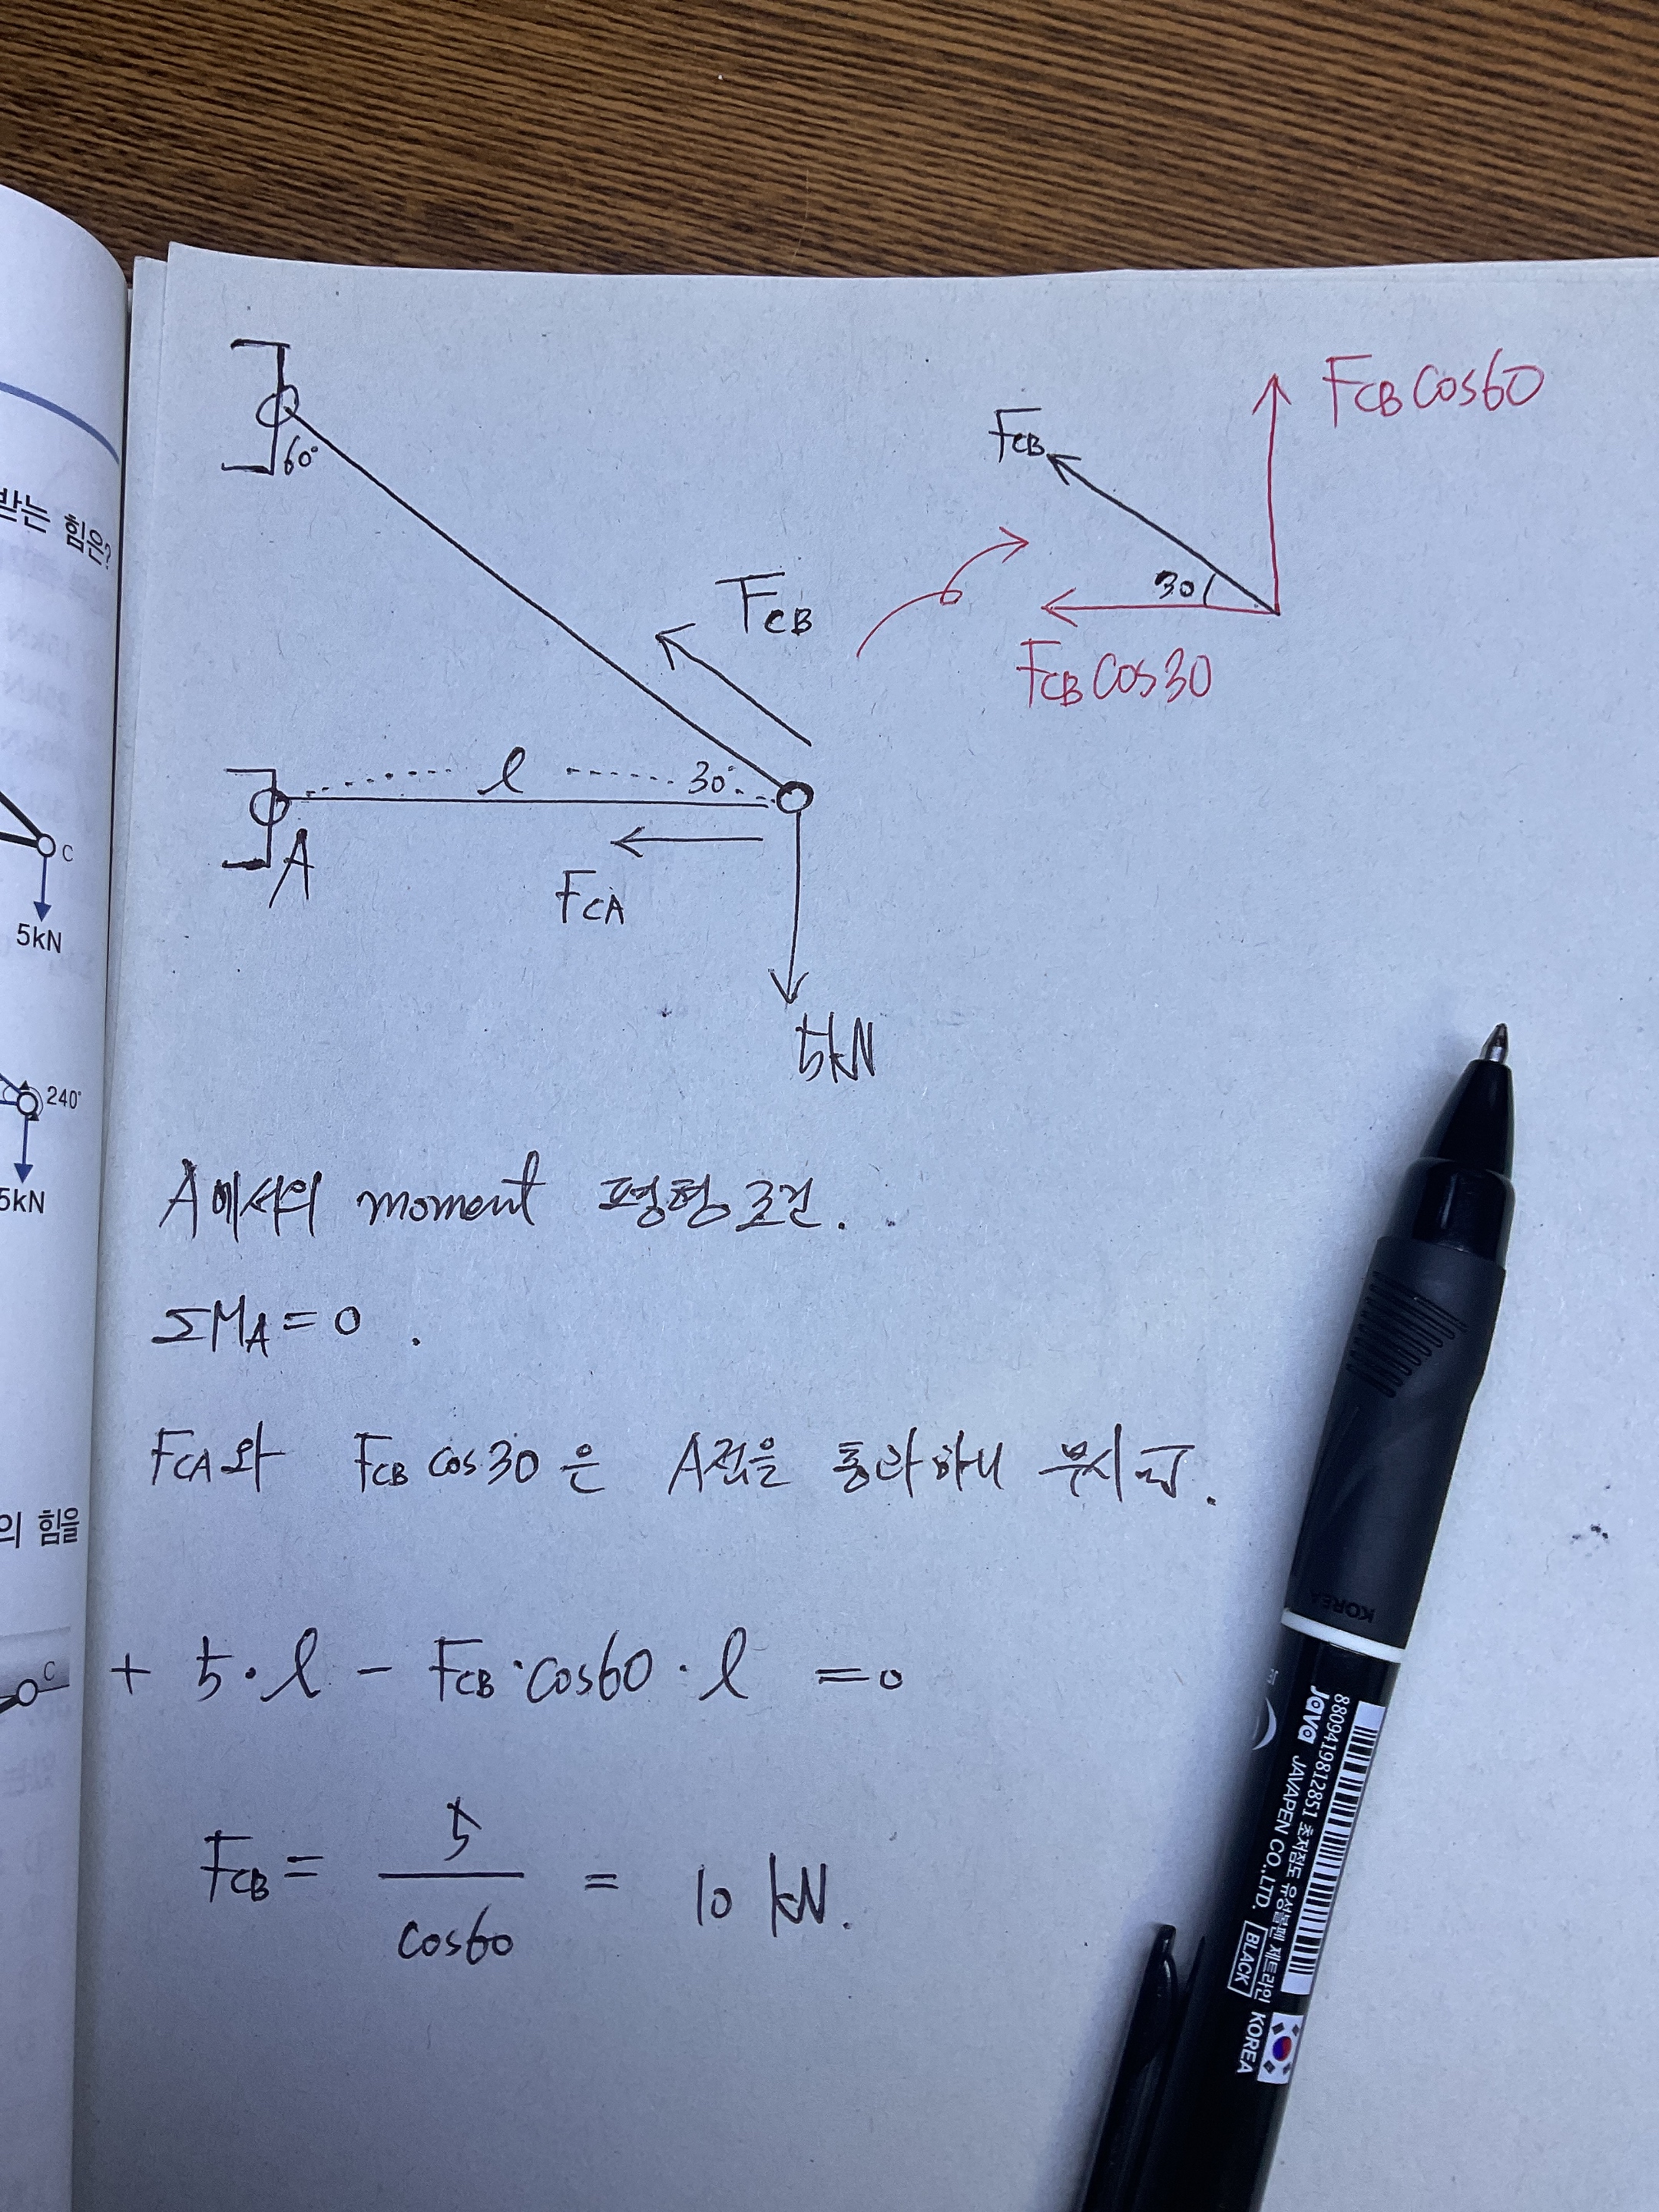 받는 힘은?
C
5kN
240°
5kN
의 힘을
C
60°
F_CB
l
30°
A
F_CA
5kN
F_CB
F_CB cos60
30
F_CB cos30
A에서의 moment 평형조건.
ΣM_A = 0 .
F_CA와 F_CB cos30은 A점을 통과하니 무시됨.
+ 5·l - F_CB·cos60·l = 0
F_CB = 5 / cos60 = 10 kN.
KOREA
8809419812851 초저점도 유성볼펜 제트라인
Java JAVAPEN CO.,LTD. BLACK KOREA